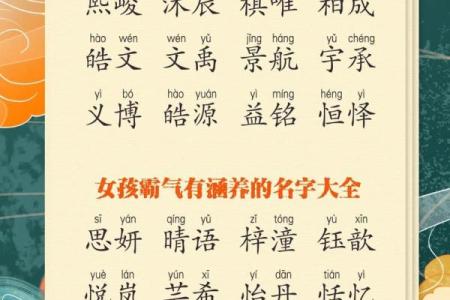 熙峻 沐辰 棋唯 柏成
hào wén wén yǔ jǐng háng yǔ chéng
皓文 文禹 景航 宇承
yì bó hào yuán yì míng héng yì
义博 皓源 益铭 恒怿
女孩霸气有涵养的名字大全
sī yán qíng yǔ zǐ tóng yù xīn
思妍 晴语 梓潼 钰歆
yuè lán yún xī yí dān tián yì
悦岚 芸希 怡丹 恬忆